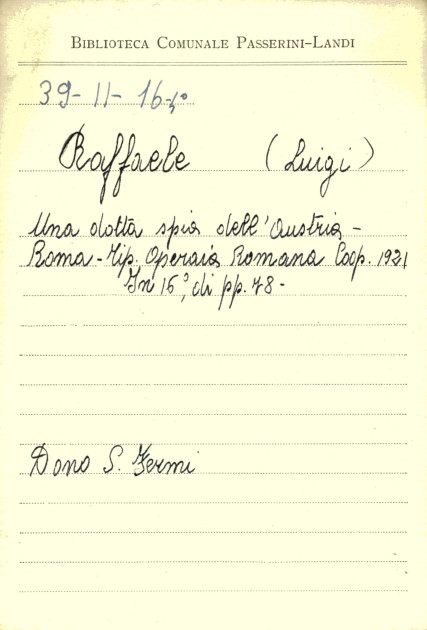 BIBLIOTECA COMUNALE PASSERINI-LANDI
39-11-16-4°
Raffaele (Luigi)
Una dotta spia dell'Austria -
Roma - Tip. Operaia Romana Coop. 1921
In 16°, di pp. 48 -
Dono S. Fermi